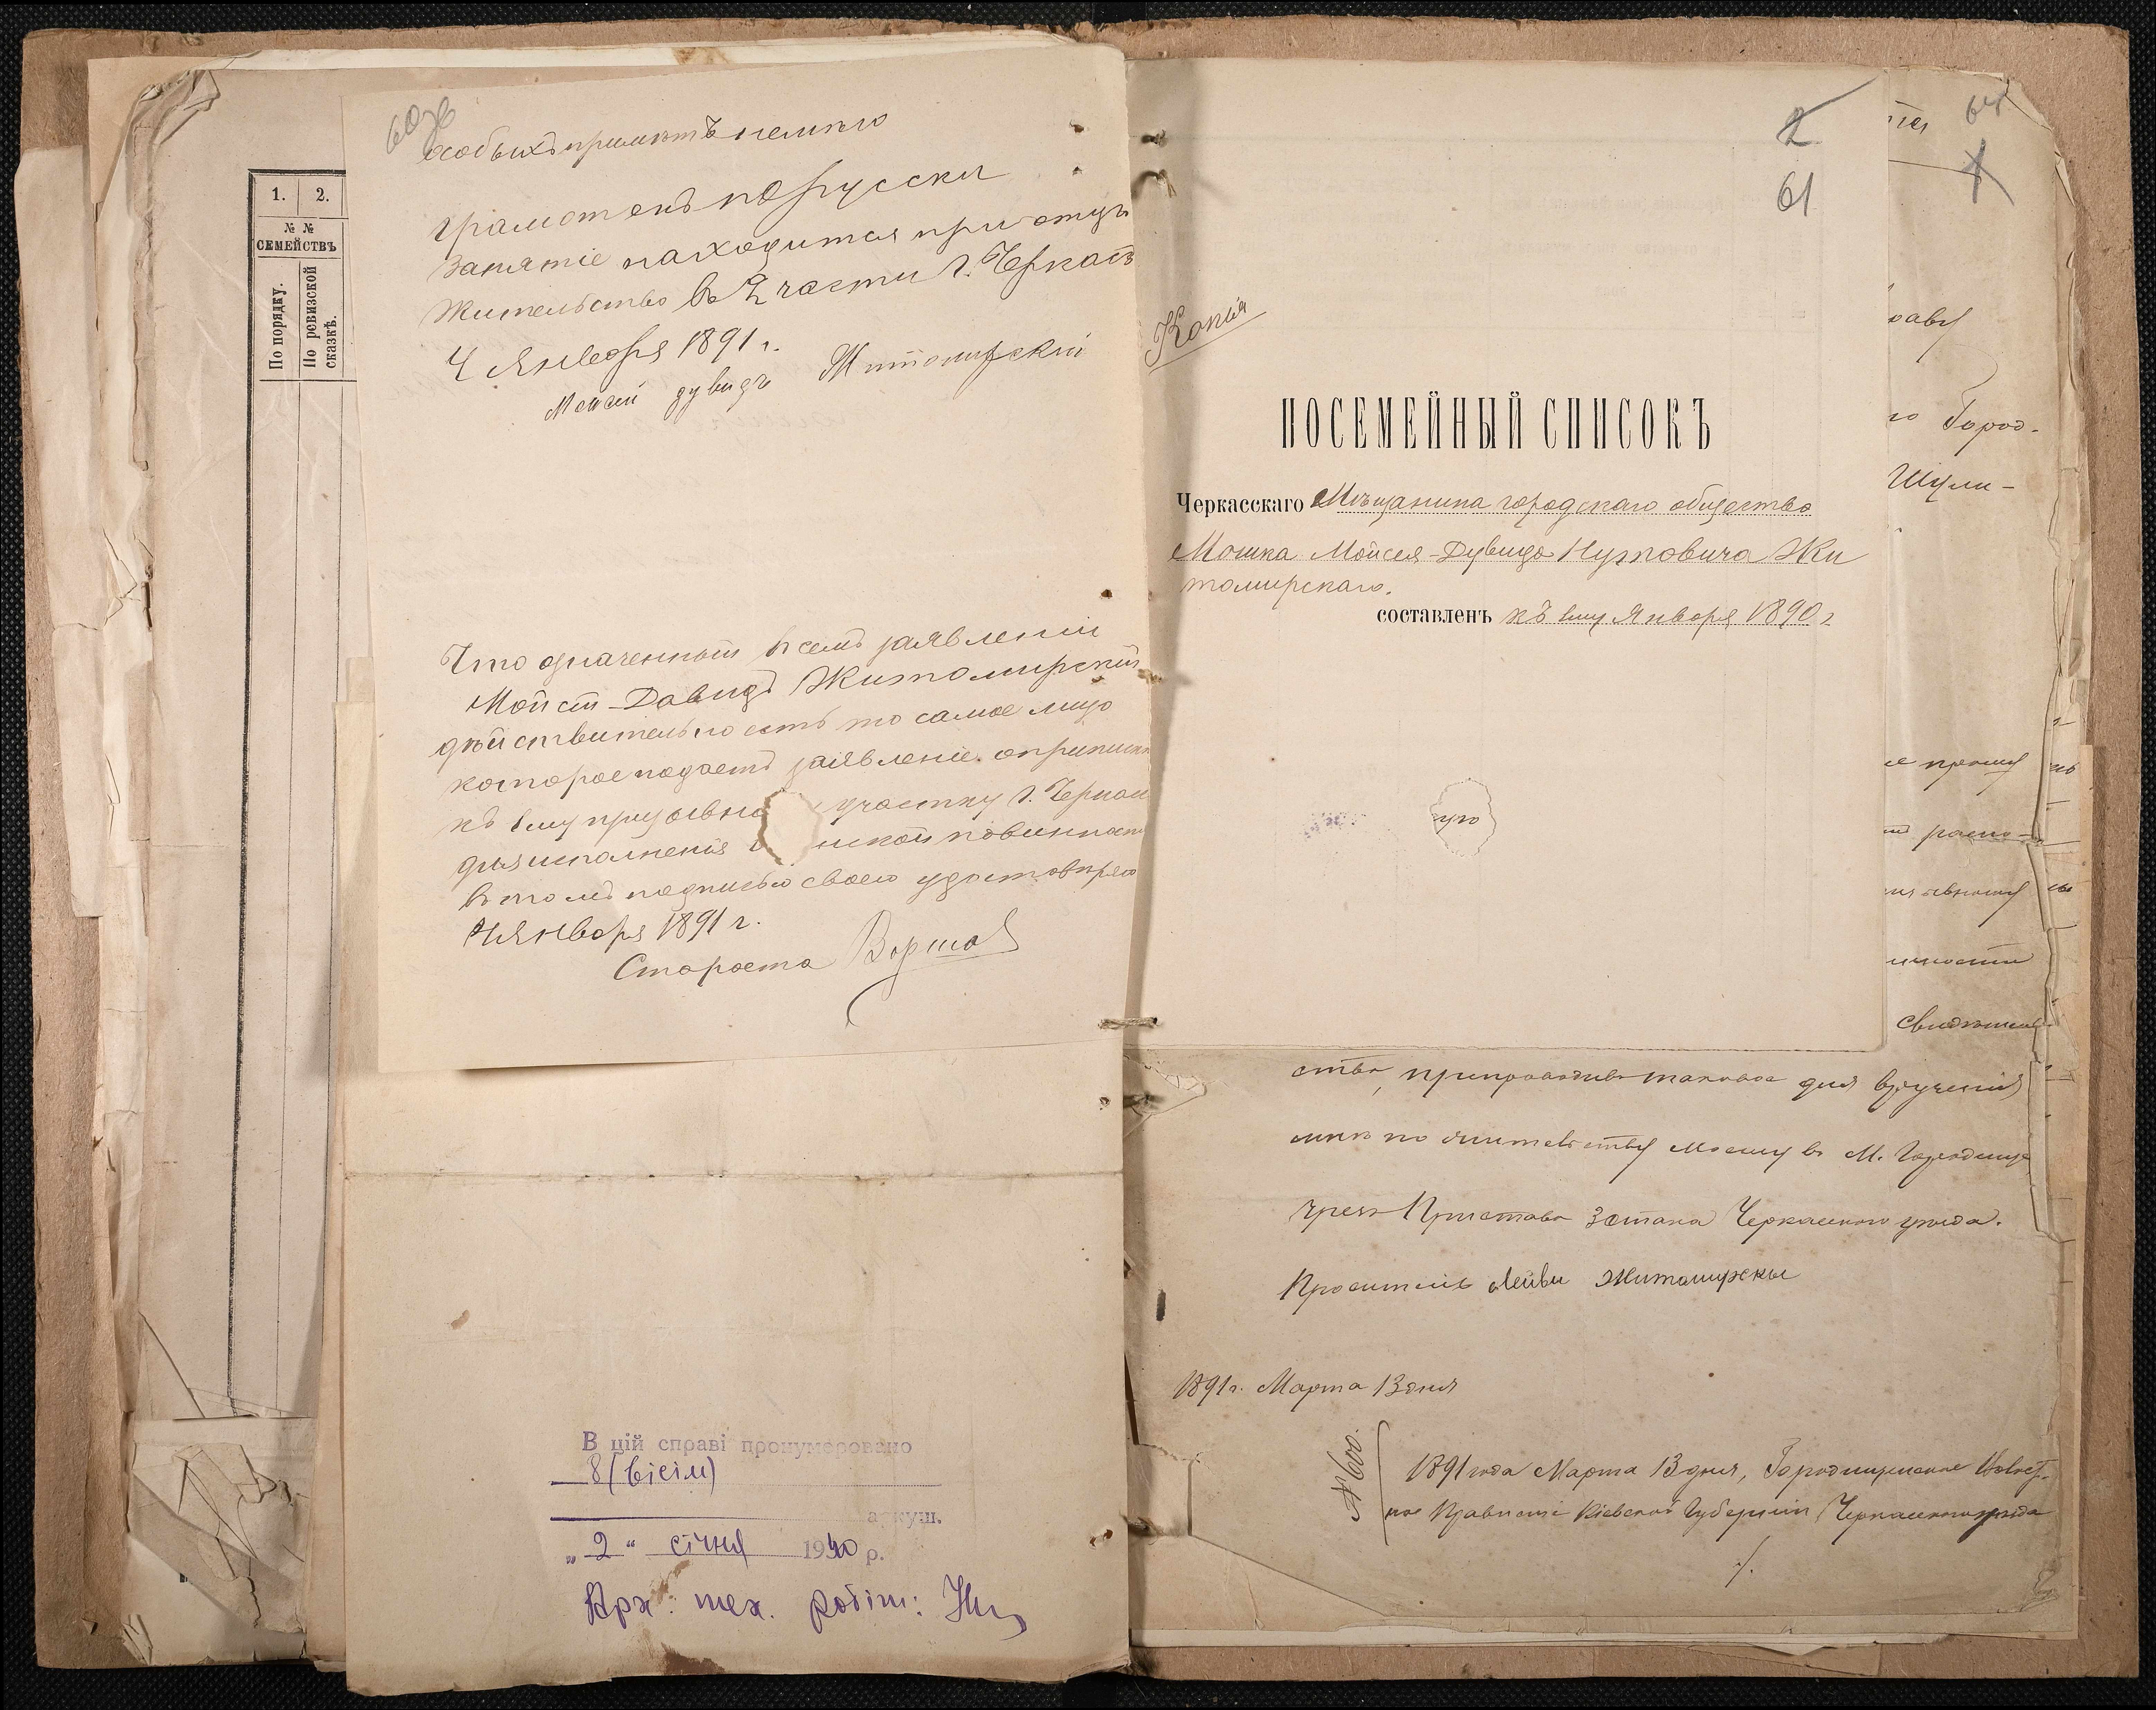 1. 2.
№ №
СЕМЕЙСТВЪ
По порядку.
По ревизской сказкѣ.
особыхъ примѣтъ
грамотенъ порусски
занятіе находится при отцѣ
жительство въ 2 части г. Черкасъ
4 Января 1891 г.
Мойсей дувидъ Житомирскій
Что означенный въ семъ заявленіи
Мойсей-Давидъ Житомирскій
дѣйствительно есть то самое лицо
которое подаетъ заявленіе о припискѣ
къ 1му призывно участку г. Черкас
для исполненія в нской повинности
въ томъ подписью своею удостовѣряю
4 Января 1891 г.
Староста
В цій справі пронумеровано
8 (вісім)
аркуш.
„2“ січня 1940 р.
Арх. тех. робітн:
2
61
Копія
ПОСЕМЕЙНЫЙ СПИСОКЪ
Черкасскаго Мѣщанина городскаго общества
Мошка Мойсея-Дувида Нутовича Жи
томирскаго.
составленъ къ 1му Января 1890 г
что
64
1
Город-
Шули-
прошу
свидѣтель-
ство, препроводивъ таковое для врученія
мнѣ по жительству моему въ М. Городище
чрезъ Пристава 3 стана Черкасскаго уѣзда.
Проситель Лейви Житомирскы
1891 г. Марта 13 дня
№ 600.
1891 года Марта 13 дня, Городищенское Волост-
ное Правленіе Кіевской Губерніи Черкасскаго уѣзда